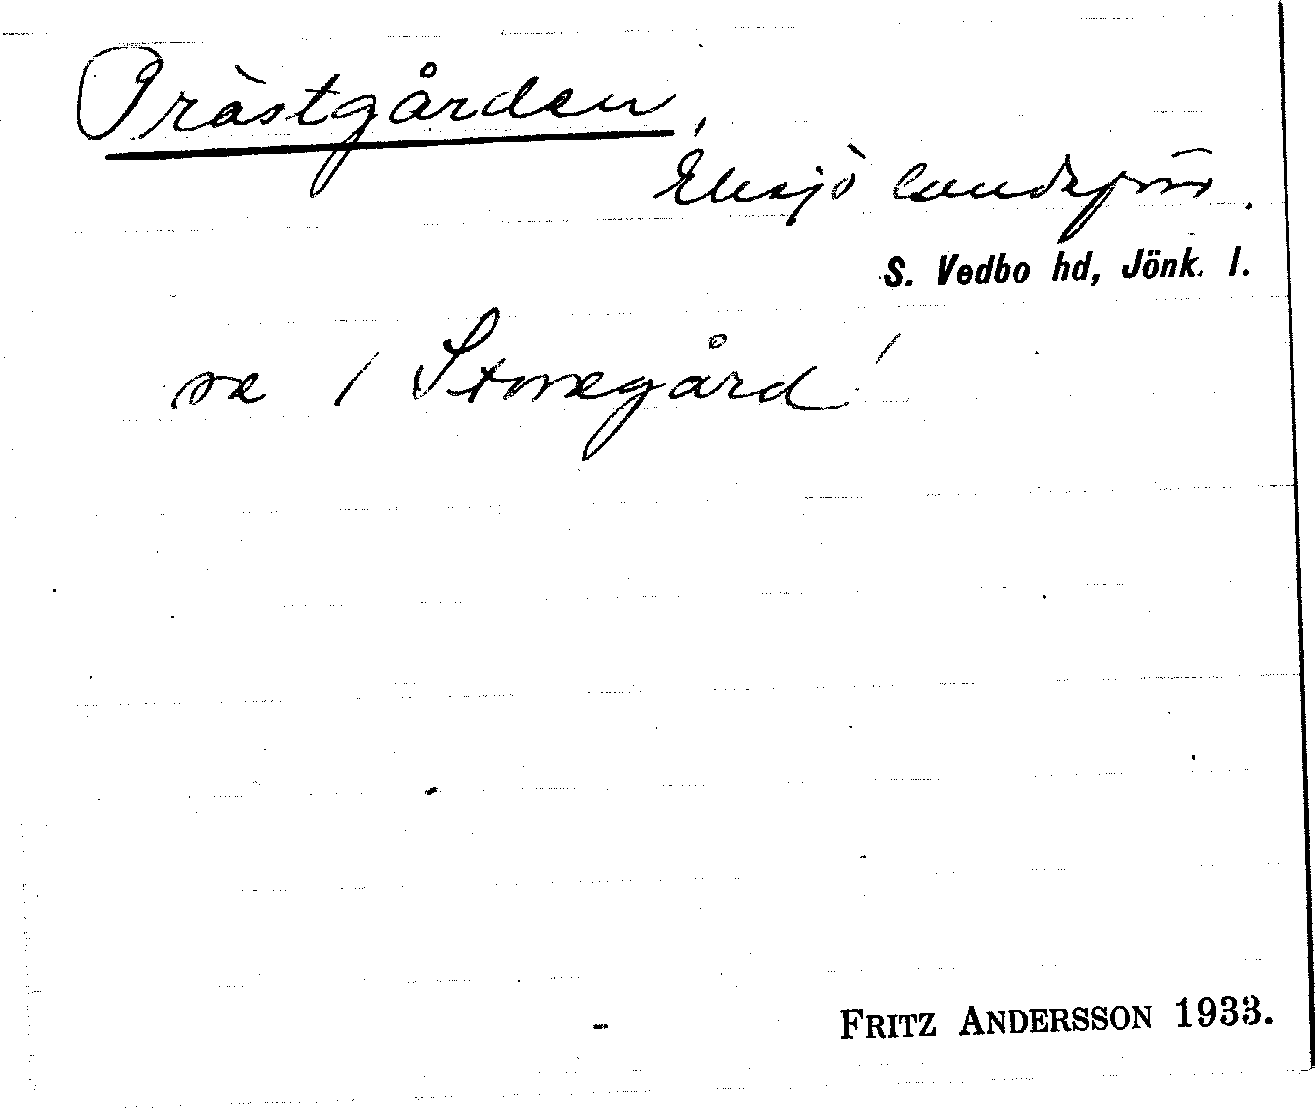 Prästgården,
Eksjö landsförs.
S. Vedbo hd, Jönk. l.
se / Storegård /
FRITZ ANDERSSON 1933.